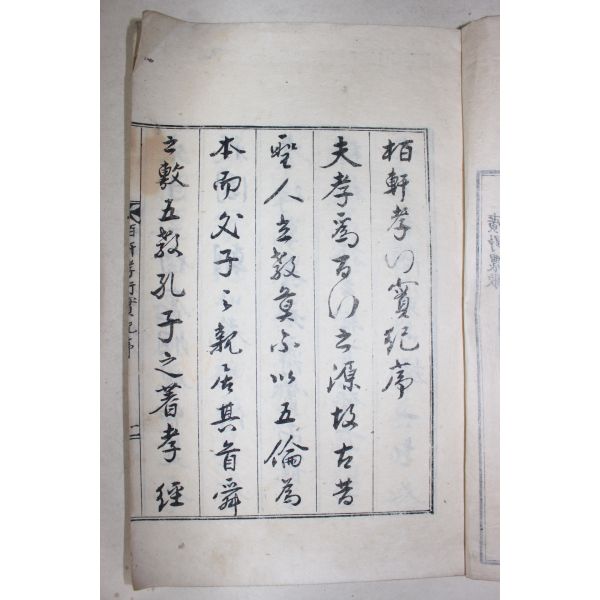 栢軒孝行實紀序
夫孝爲百行之源故古昔
聖人立教莫不以五倫爲
本而父子之親居其首舜
之敷五教孔子之著孝經
栢軒孝行實紀序
一